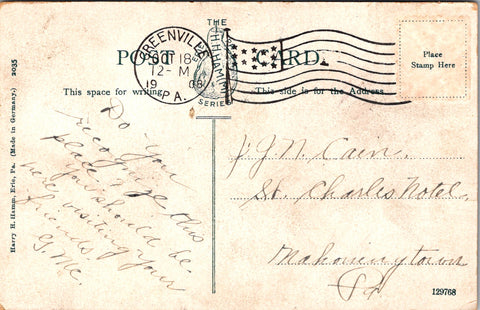 THE
POST CARD.
H.H.HAMM
SERIES
GREENVILLE
OCT 18
12-M
1908
PA.
Place
Stamp Here
This space for writing
This side is for the Address.
Harry H. Hamm, Erie, Pa. (Made in Germany.) 2035
Do you
recognize this
place &
You should be
here visiting your
friends.
G. Mc.
J. G. N. Cain.
St. Charles Hotel.
Mahoningtown
Pa
129768